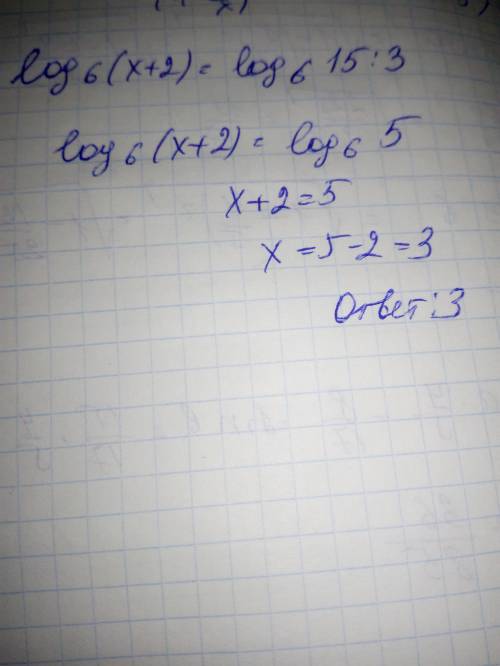 log₆(x+2) = log₆ 15:3
log₆(x+2) = log₆ 5
x+2=5
x=5-2=3
Ответ: 3